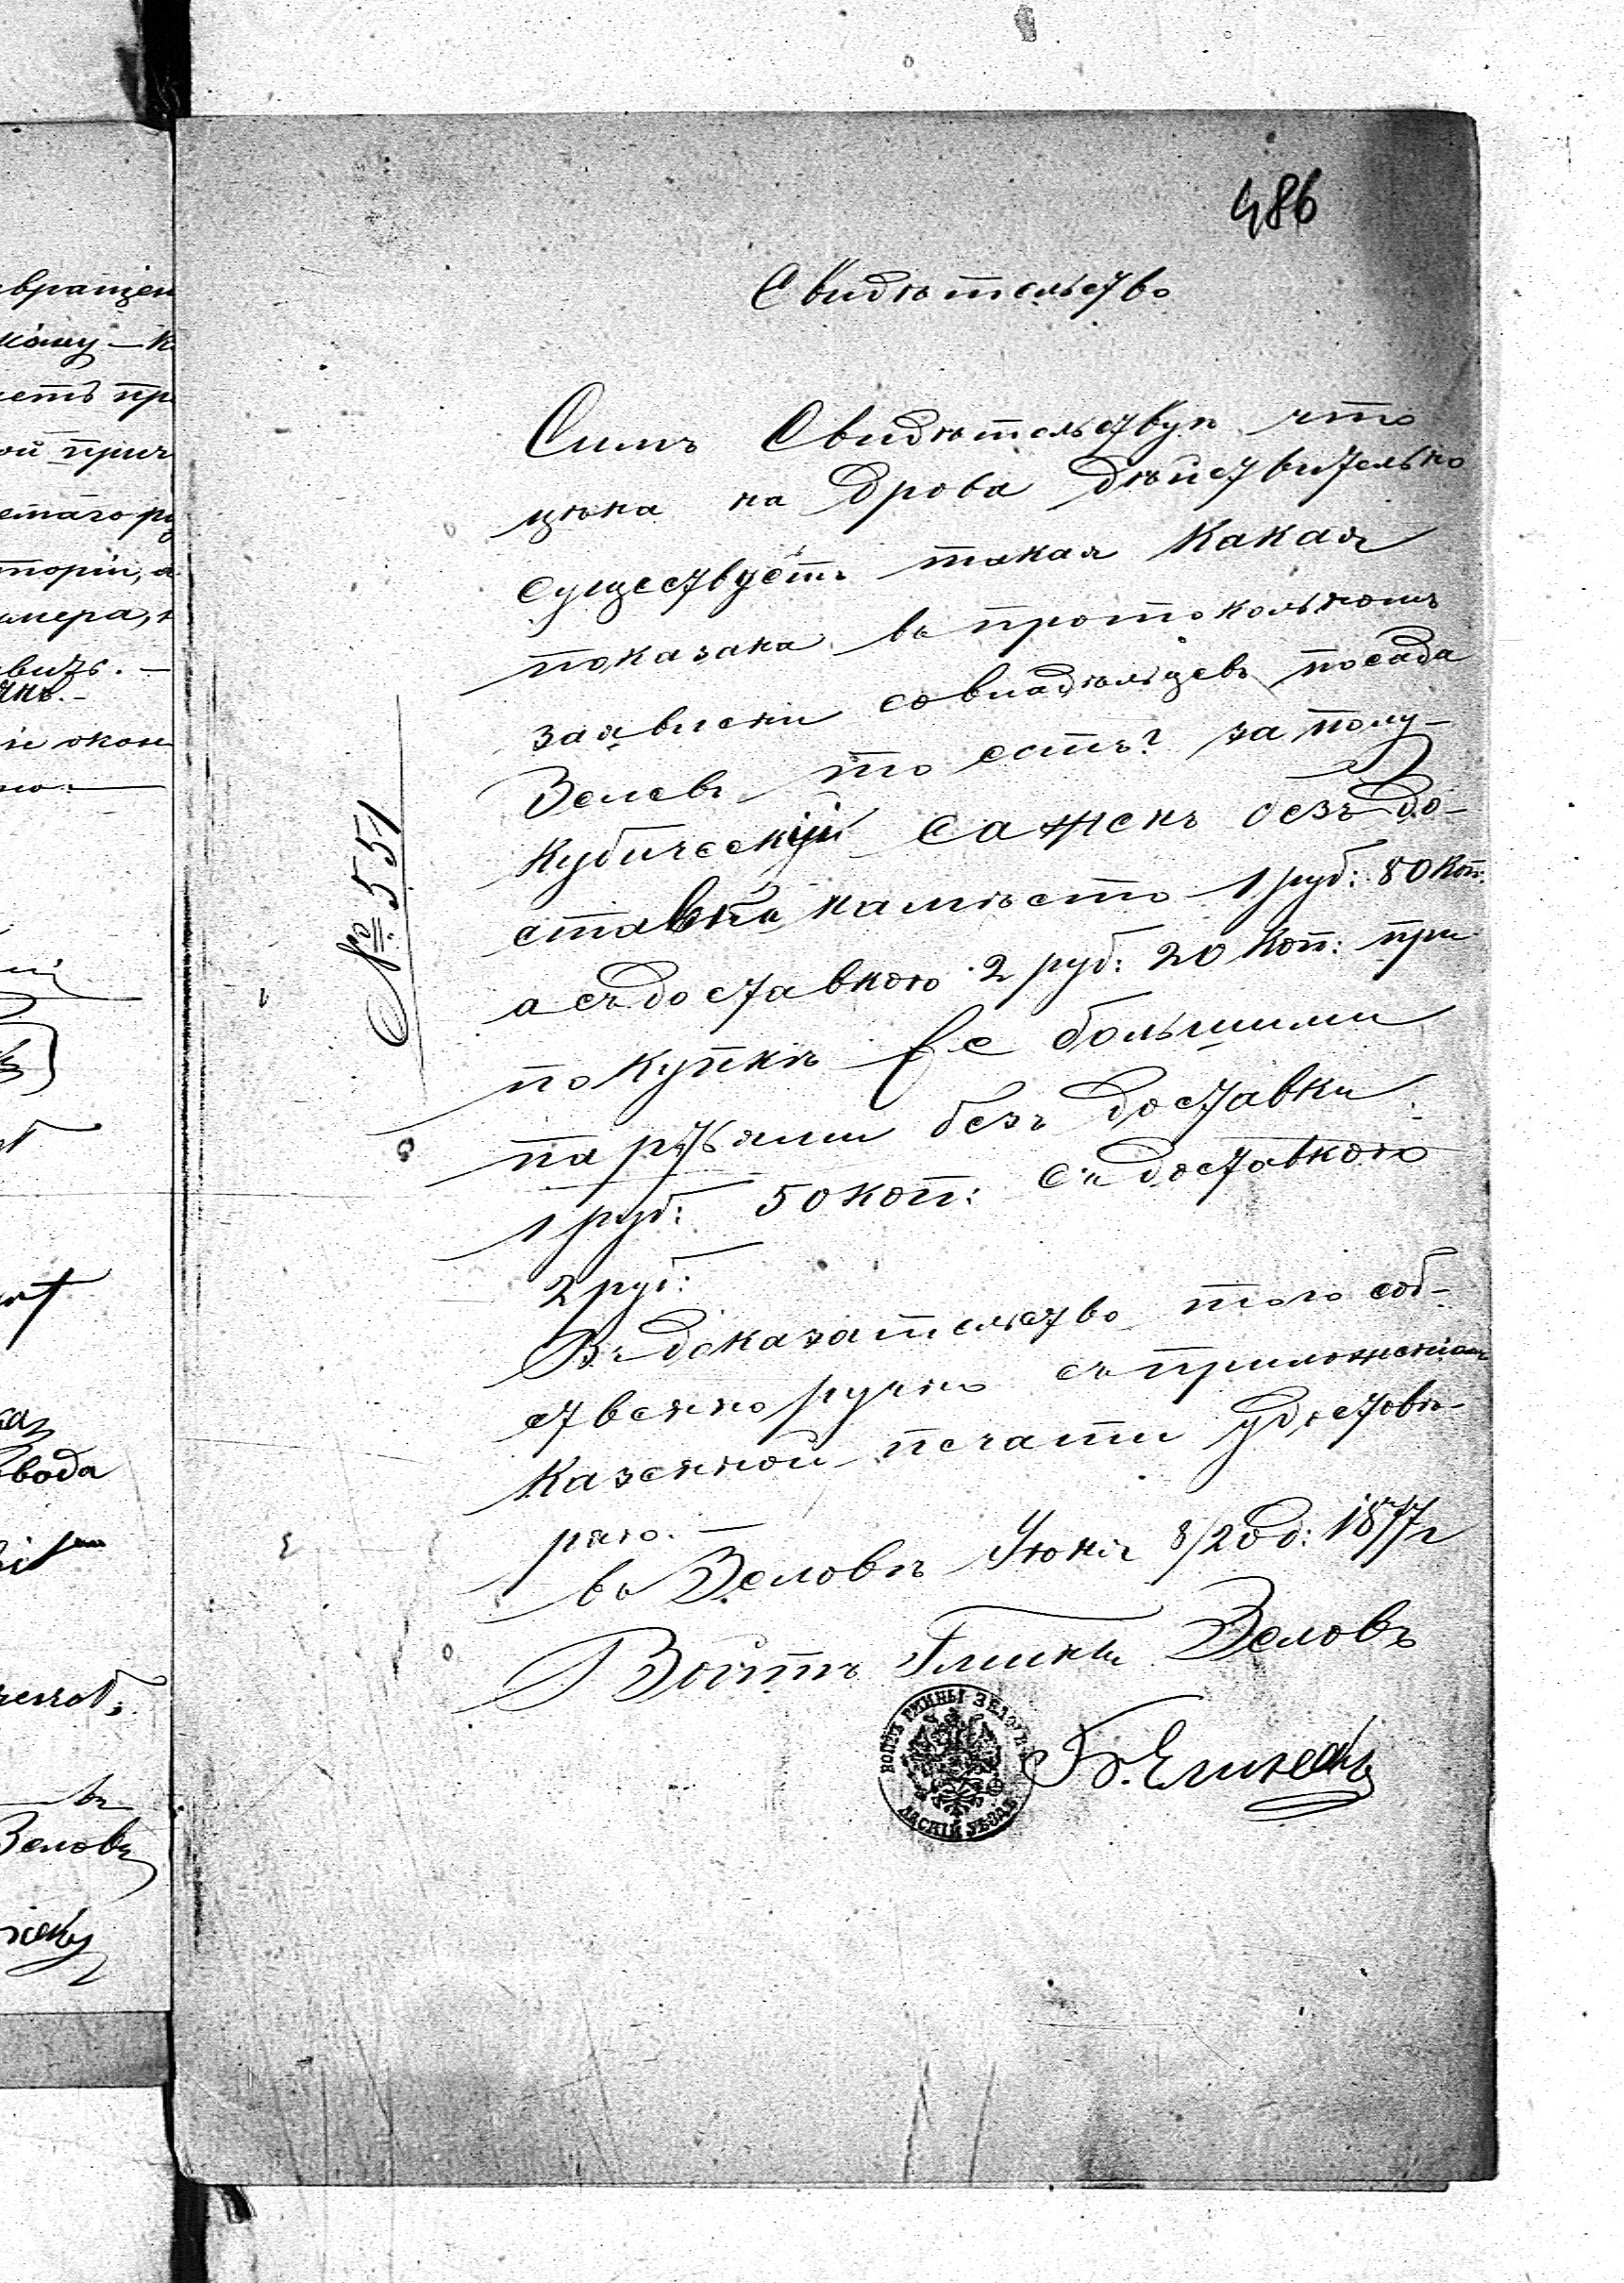 486
Свидѣтельство
Симъ Свидѣтельствую что
цѣна на Дрова дѣйствительно
существуетъ такая Какая
показана въ протокольномъ
заявлени совладѣльцевъ посада
Зеловъ то есть? за полу-
Кубическій Сажень безъ до-
ставки намѣсто 1 руб: 80 коп:
а съ доставкою 2 руб: 20 коп: при
покупкѣ Ее большими
партьями безъ доставки
1 руб: 50 коп: Съ доставкою
2 руб:
Въ доказательство того соб-
ственноручно съ приложеніемъ
Казенной печати удостовѣ-
ряю. —
въ Зеловѣ Іюня 8/20 д: 1877 г
Войтъ Гмины Зеловъ
№ 551
ВОЙТЪ ГМИНЫ ЗЕЛОВЪ
ЛАСКІЙ УѢЗДЪ
вращен
кому — к
етъ пр
ой прич
торіи, а
мера,
вичъ. —
окон
вода
Зеловъ